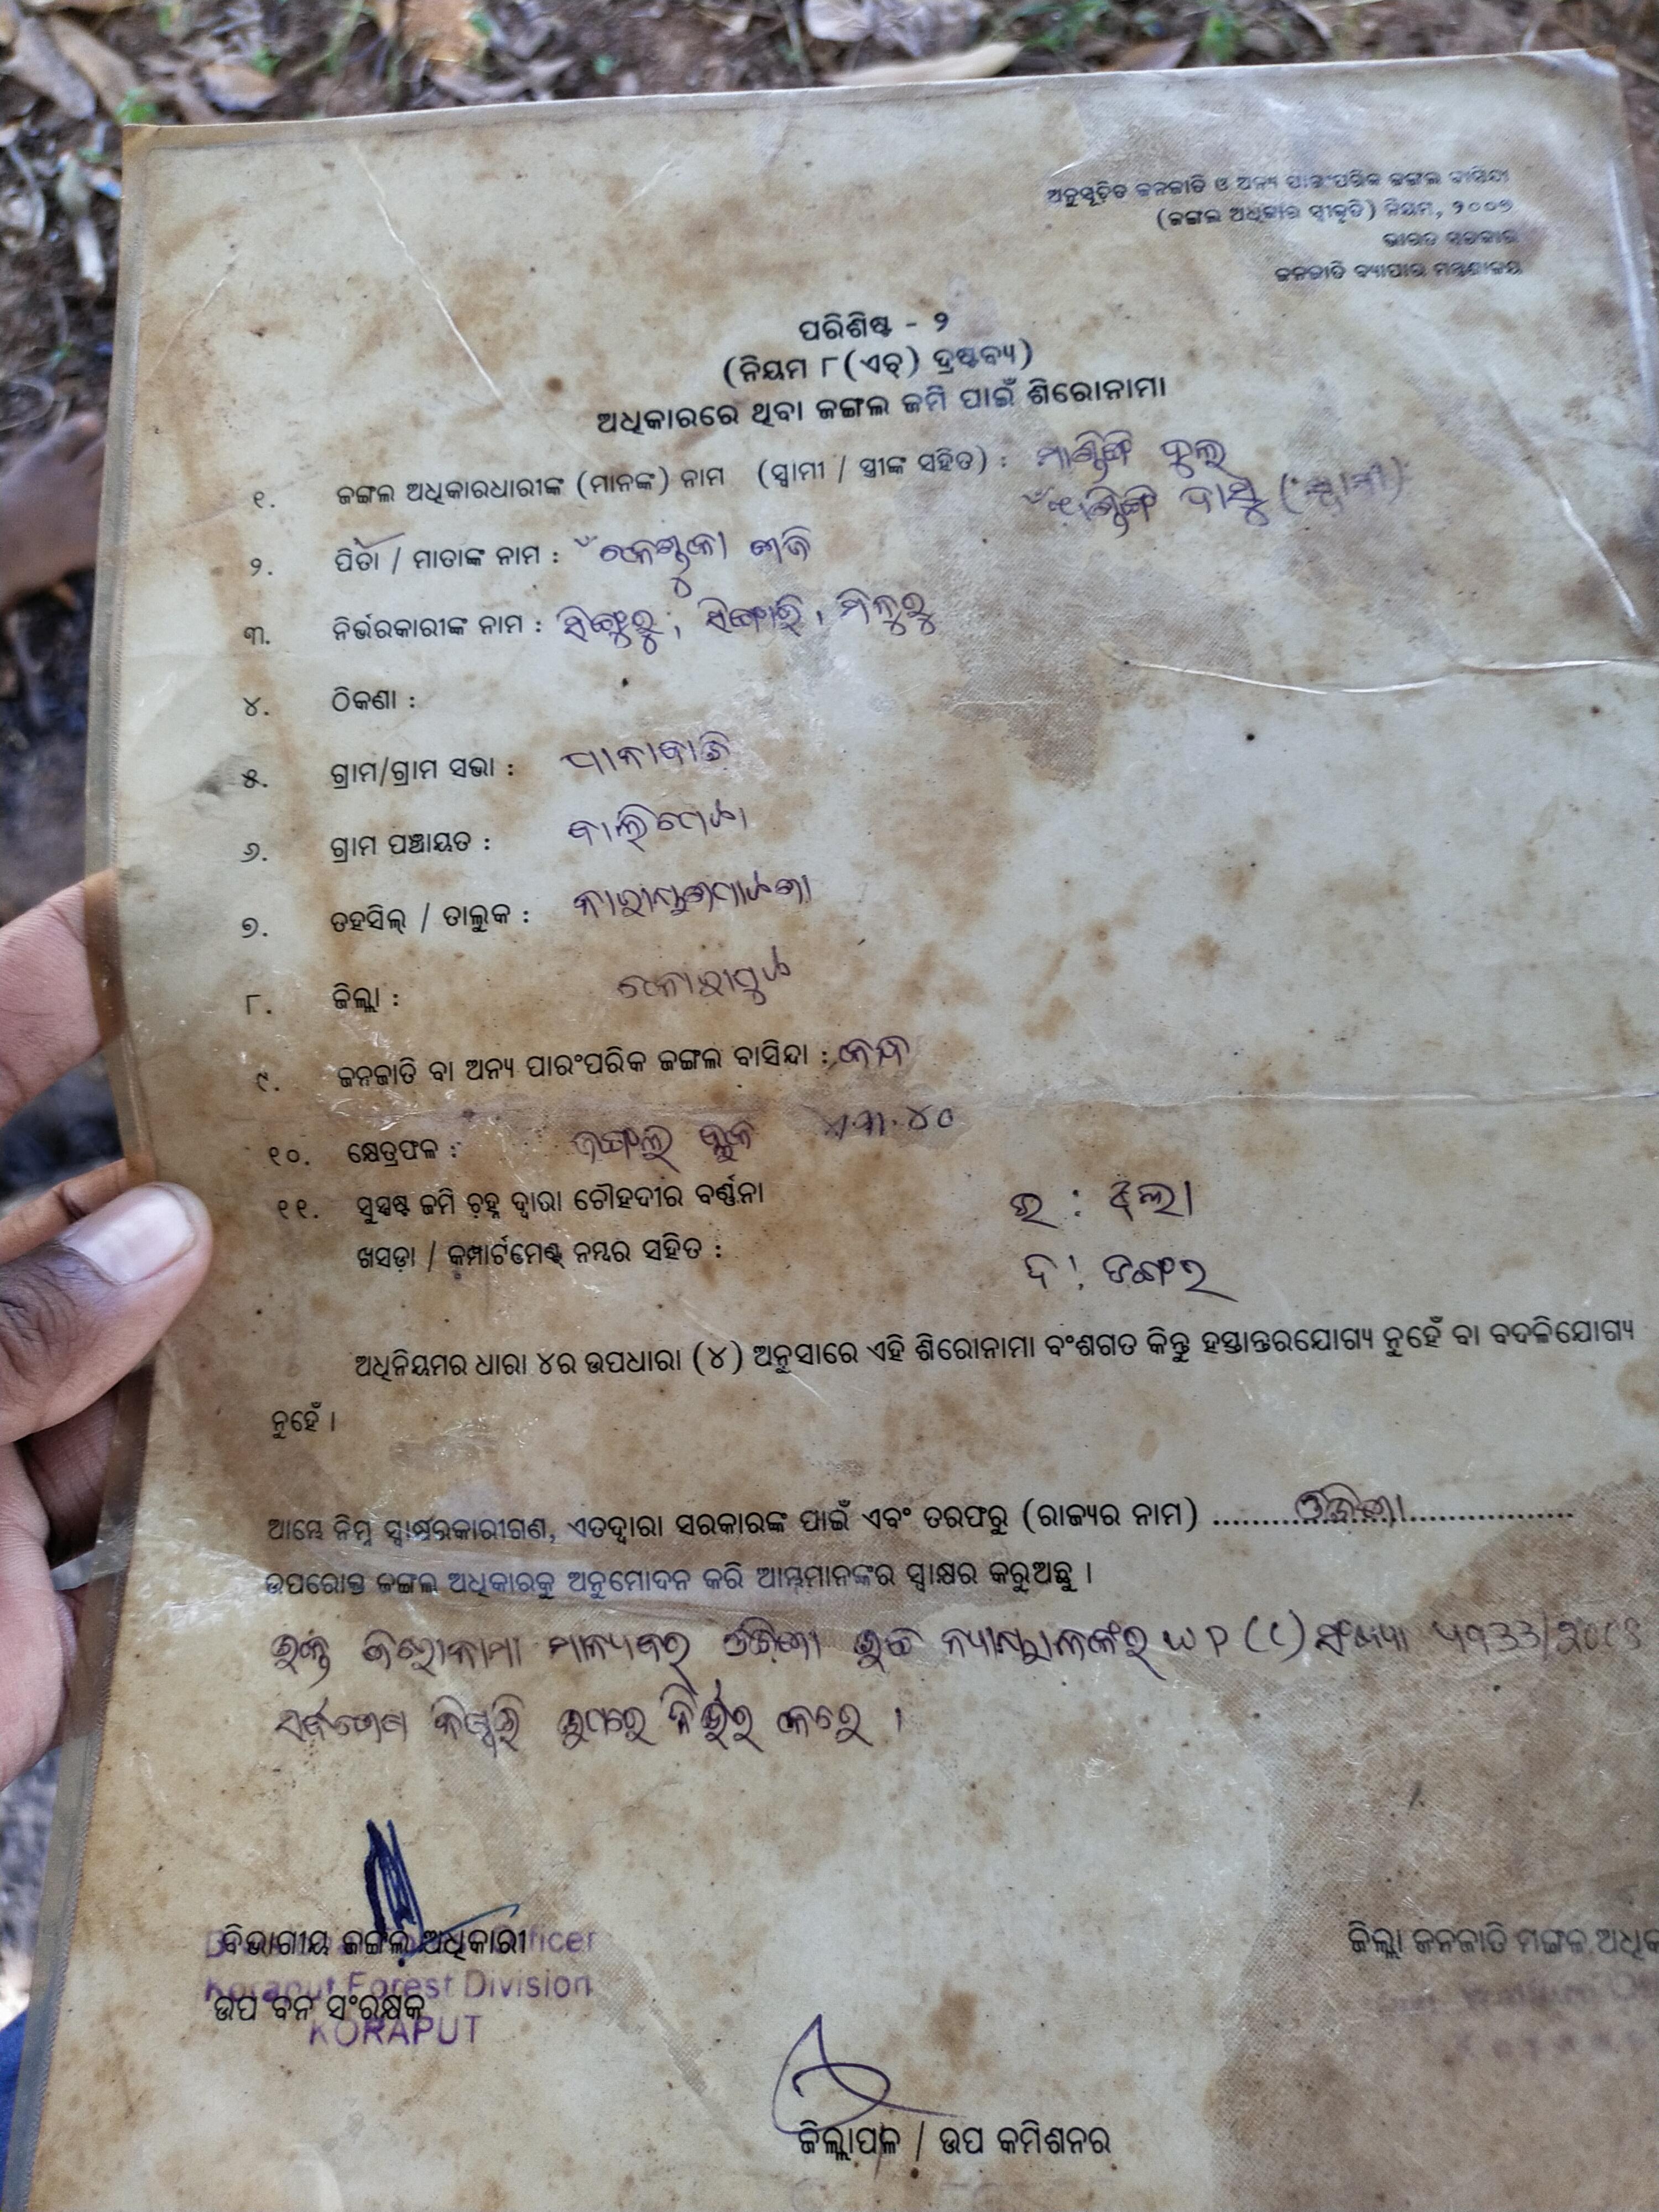 ଅନୁସୂଚିତ ଜନଜାତି ଓ ଅନ୍ୟ ପାରଂପରିକ ଜଙ୍ଗଲ ବାସିନ୍ଦା
(ଜଙ୍ଗଲ ଅଧିକାର ସ୍ୱୀକୃତି) ନିୟମ, ୨୦୦୭
ଭାରତ ସରକାର
ଜନଜାତି ବ୍ୟାପାର ମନ୍ତ୍ରଣାଳୟ
ପରିଶିଷ୍ଟ - ୨
(ନିୟମ ୮(ଏଚ୍) ଦ୍ରଷ୍ଟବ୍ୟ)
ଅଧିକାରରେ ଥିବା ଜଙ୍ଗଲ ଜମି ପାଇଁ ଶିରୋନାମା
୧. ଜଙ୍ଗଲ ଅଧିକାରଧାରୀଙ୍କ (ମାନଙ୍କ) ନାମ (ସ୍ୱାମୀ / ସ୍ତ୍ରୀଙ୍କ ସହିତ) :
ଦାସୁ
୨. ପିତା / ମାତାଙ୍କ ନାମ :
୩. ନିର୍ଭରକାରୀଙ୍କ ନାମ :
୪. ଠିକଣା :
୫. ଗ୍ରାମ/ଗ୍ରାମ ସଭା :
୬. ଗ୍ରାମ ପଞ୍ଚାୟତ : ବାଲିପେଟା
୭. ତହସିଲ୍ / ତାଲୁକ : ନାରାୟଣପାଟଣା
୮. ଜିଲ୍ଲା : କୋରାପୁଟ
୯. ଜନଜାତି ବା ଅନ୍ୟ ପାରଂପରିକ ଜଙ୍ଗଲ ବାସିନ୍ଦା : କନ୍ଧ
୧୦. କ୍ଷେତ୍ରଫଳ : ଜଙ୍ଗଲ ବ୍ଲକ ୪୦
୧୧. ସୁସ୍ପଷ୍ଟ ଜମି ଚିହ୍ନ ଦ୍ୱାରା ଚୌହଦୀର ବର୍ଣ୍ଣନା ଉ :
ଖସଡ଼ା / କମ୍ପାର୍ଟମେଣ୍ଟ୍ ନମ୍ବର ସହିତ : ଦ : ଡଙ୍ଗର
ଅଧିନିୟମର ଧାରା ୪ର ଉପଧାରା (୪) ଅନୁସାରେ ଏହି ଶିରୋନାମା ବଂଶଗତ କିନ୍ତୁ ହସ୍ତାନ୍ତରଯୋଗ୍ୟ ନୁହେଁ ବା ବଦଳିଯୋଗ୍ୟ
ନୁହେଁ ।
ଆମ୍ଭେ ନିମ୍ନ ସ୍ୱାକ୍ଷରକାରୀଗଣ, ଏତଦ୍ୱାରା ସରକାରଙ୍କ ପାଇଁ ଏବଂ ତରଫରୁ (ରାଜ୍ୟର ନାମ) ......ଓଡ଼ିଶା......
ଉପରୋକ୍ତ ଜଙ୍ଗଲ ଅଧିକାରକୁ ଅନୁମୋଦନ କରି ଆମ୍ଭମାନଙ୍କର ସ୍ୱାକ୍ଷର କରୁଅଛୁ ।
ଉକ୍ତ ଶିରୋନାମା ମାନ୍ୟବର ଓଡ଼ିଶା ଉଚ୍ଚ ନ୍ୟାୟାଳୟଙ୍କର WP (C) ସଂଖ୍ୟା
ସର୍ବଶେଷ ନିଷ୍ପତ୍ତି ଉପରେ ନିର୍ଭର କରେ ।
ବିଭାଗୀୟ ଜଙ୍ଗଲ ଅଧିକାରୀ
Koraput Forest Division
ଉପ ବନ ସଂରକ୍ଷକ
KORAPUT
ଜିଲ୍ଲା ଜନଜାତି ମଙ୍ଗଳ
ଜିଲ୍ଲାପାଳ / ଉପ କମିଶନର